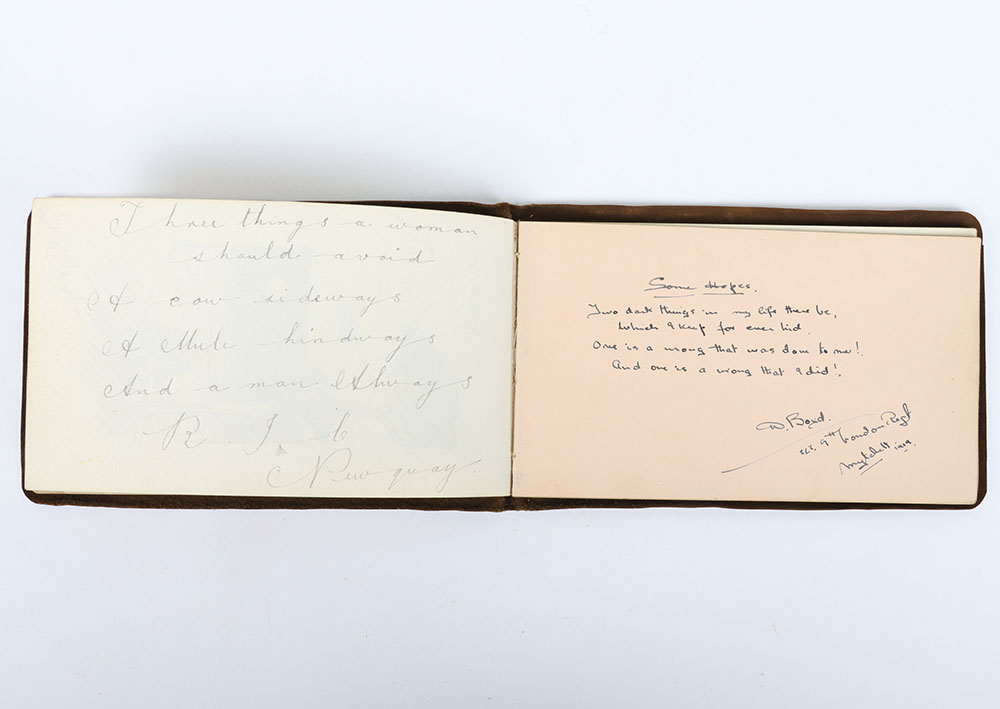 Three things a woman
should avoid
A cow sideways
A Mule hindways
And a man Always
R. J. C
Newquay.
Some Hopes.
Two dark things in my life there be,
Which I keep for ever hid.
One is a wrong that was done to me!.
And one is a wrong that I did!.
D. Boyd.
9th London Regt
Mytchett 1919.